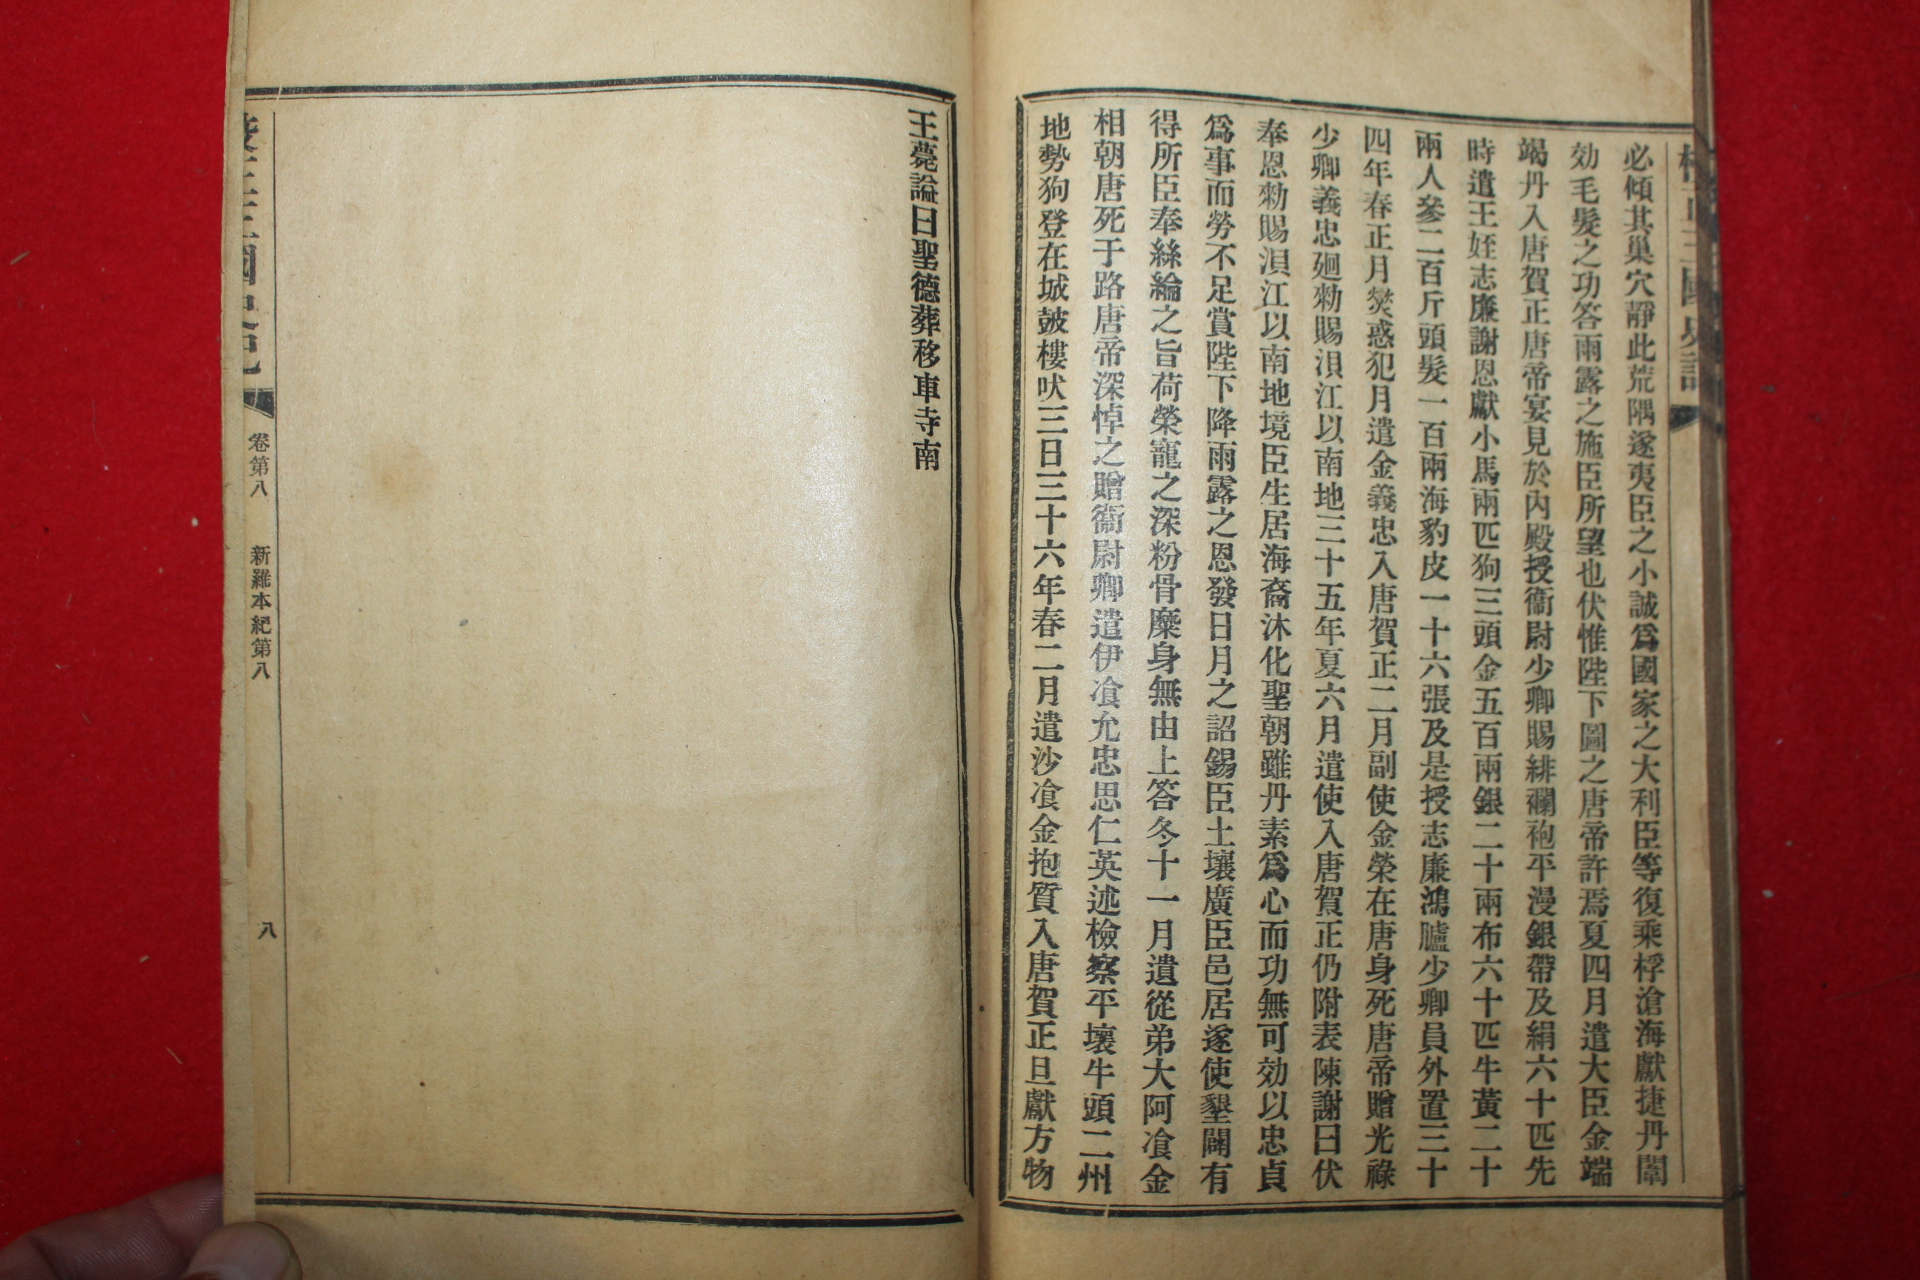 必傾其巢穴靜此荒隅遂夷臣之小誠爲國家之大利臣等復乘桴滄海獻捷丹闈
効毛髮之功答雨露之施臣所望也伏惟陛下圖之唐帝許焉夏四月遣大臣金端
竭丹入唐賀正唐帝宴見於內殿授衞尉少卿賜緋襴袍平漫銀帶及絹六十匹先
時遣王姪志廉謝恩獻小馬兩匹狗三頭金五百兩銀二十兩布六十匹牛黃二十
兩人參二百斤頭髮一百兩海豹皮一十六張及是授志廉鴻臚少卿員外置三十
四年春正月熒惑犯月遣金義忠入唐賀正二月副使金榮在唐身死唐帝贈光祿
少卿義忠廻勑賜浿江以南地三十五年夏六月遣使入唐賀正仍附表陳謝曰伏
奉恩勑賜浿江以南地境臣生居海裔沐化聖朝雖丹素爲心而功無可効以忠貞
爲事而勞不足賞陛下降雨露之恩發日月之詔錫臣土壤廣臣邑居遂使墾闢有
得所臣奉絲綸之旨荷榮寵之深粉骨糜身無由上答冬十一月遣從弟大阿飡金
相朝唐死于路唐帝深悼之贈衞尉卿遣伊飡允忠思仁英述檢察平壤牛頭二州
地勢狗登在城鼓樓吠三日三十六年春二月遣沙飡金抱質入唐賀正且獻方物
王薨諡曰聖德葬移車寺南
卷第八 新羅本紀第八 八